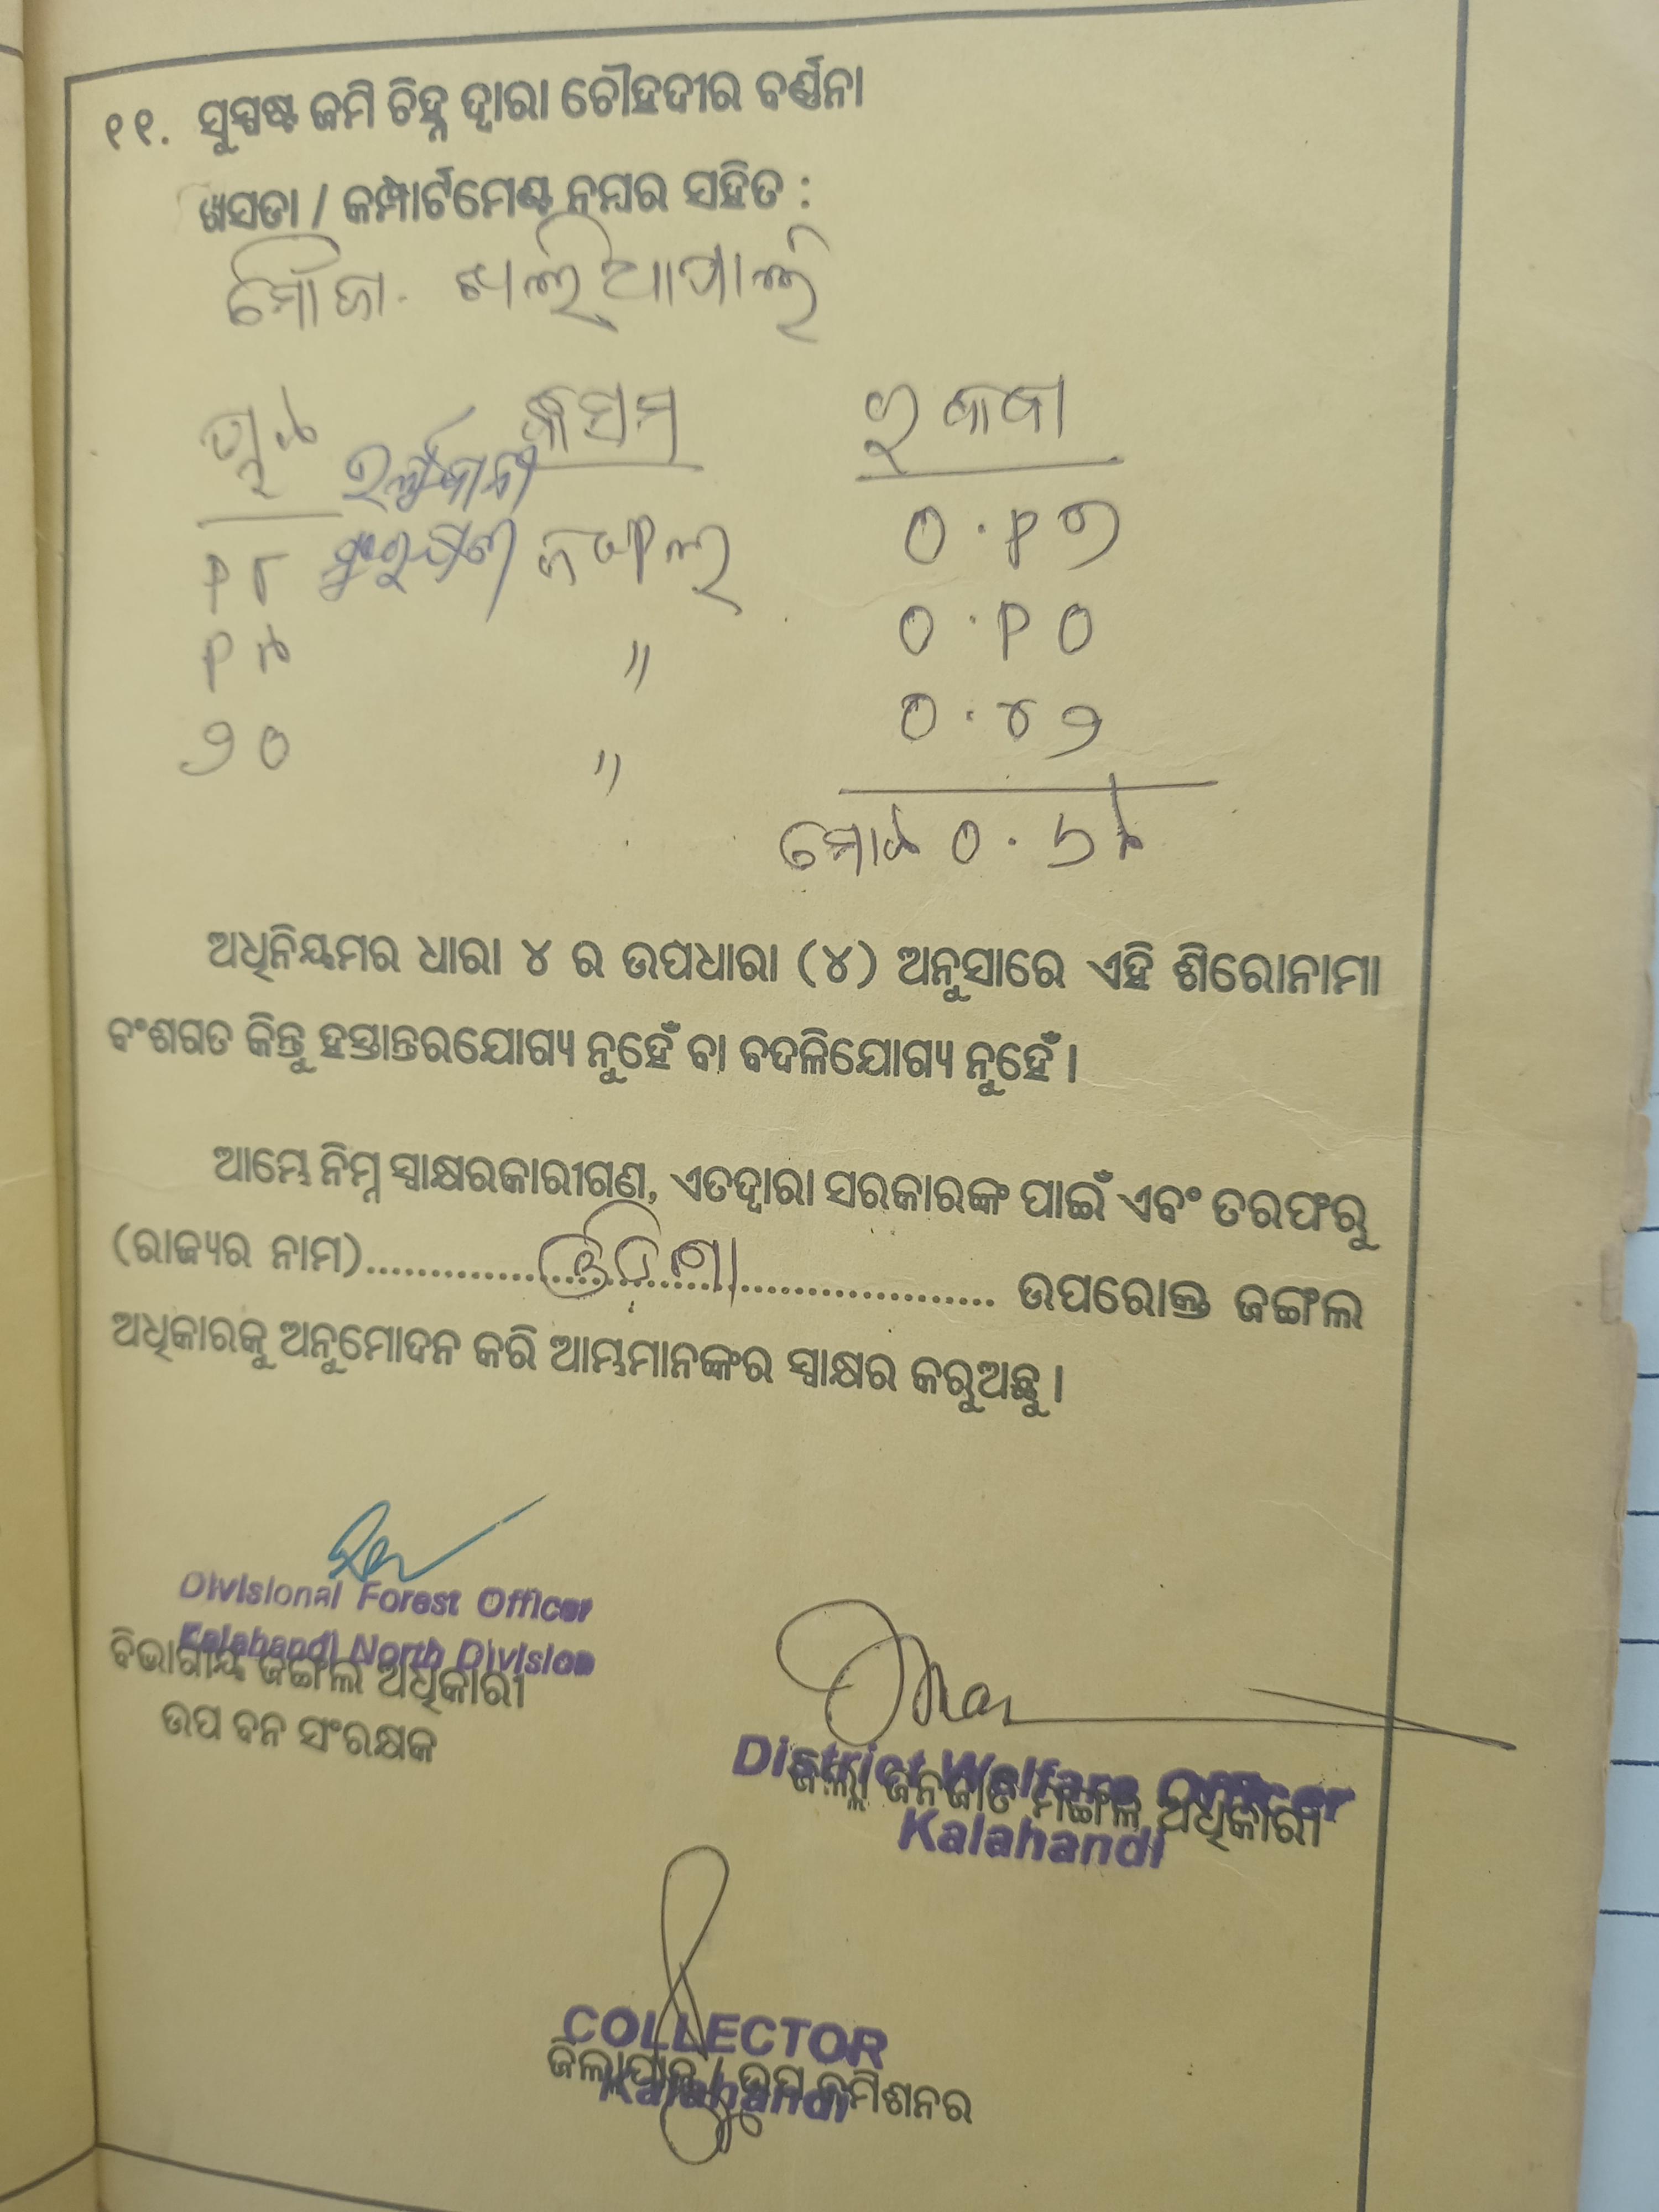 ୧୧. ସୁସ୍ପଷ୍ଟ ଜମି ଚିହ୍ନ ଦ୍ୱାରା ଚୌହଦୀର ବର୍ଣ୍ଣନା
ଖସଡା / କମ୍ପାର୍ଟମେଣ୍ଟ ନମ୍ବର ସହିତ :
ମୌଜା - ଖଲିଆପାଲି
କିସମ ରକବା
୧୮ ଜଙ୍ଗଲ ୦.୧୭
୧୯ " ୦.୧୦
୨୦ " ୦.୪୨
ମୋଟ ୦.୬୯
ଅଧିନିୟମର ଧାରା ୪ ର ଉପଧାରା (୪) ଅନୁସାରେ ଏହି ଶିରୋନାମା
ବଂଶଗତ କିନ୍ତୁ ହସ୍ତାନ୍ତରଯୋଗ୍ୟ ନୁହେଁ ବା ବଦଳିଯୋଗ୍ୟ ନୁହେଁ ।
ଆମ୍ଭେ ନିମ୍ନ ସ୍ୱାକ୍ଷରକାରୀଗଣ, ଏତଦ୍ୱାରା ସରକାରଙ୍କ ପାଇଁ ଏବଂ ତରଫରୁ
(ରାଜ୍ୟର ନାମ)............ଓଡିଶା............ ଉପରୋକ୍ତ ଜଙ୍ଗଲ
ଅଧିକାରକୁ ଅନୁମୋଦନ କରି ଆମ୍ଭମାନଙ୍କର ସ୍ୱାକ୍ଷର କରୁଅଛୁ ।
Divisional Forest Officer
Kalahandi North Division
ବିଭାଗୀୟ ଜଙ୍ଗଲ ଅଧିକାରୀ
ଉପ ବନ ସଂରକ୍ଷକ
District Welfare Officer
ଜିଲ୍ଲା ଜନଜାତି ମଙ୍ଗଳ ଅଧିକାରୀ
Kalahandi
COLLECTOR
ଜିଲ୍ଲାପାଳ / ଉପ କମିଶନର
Kalahandi